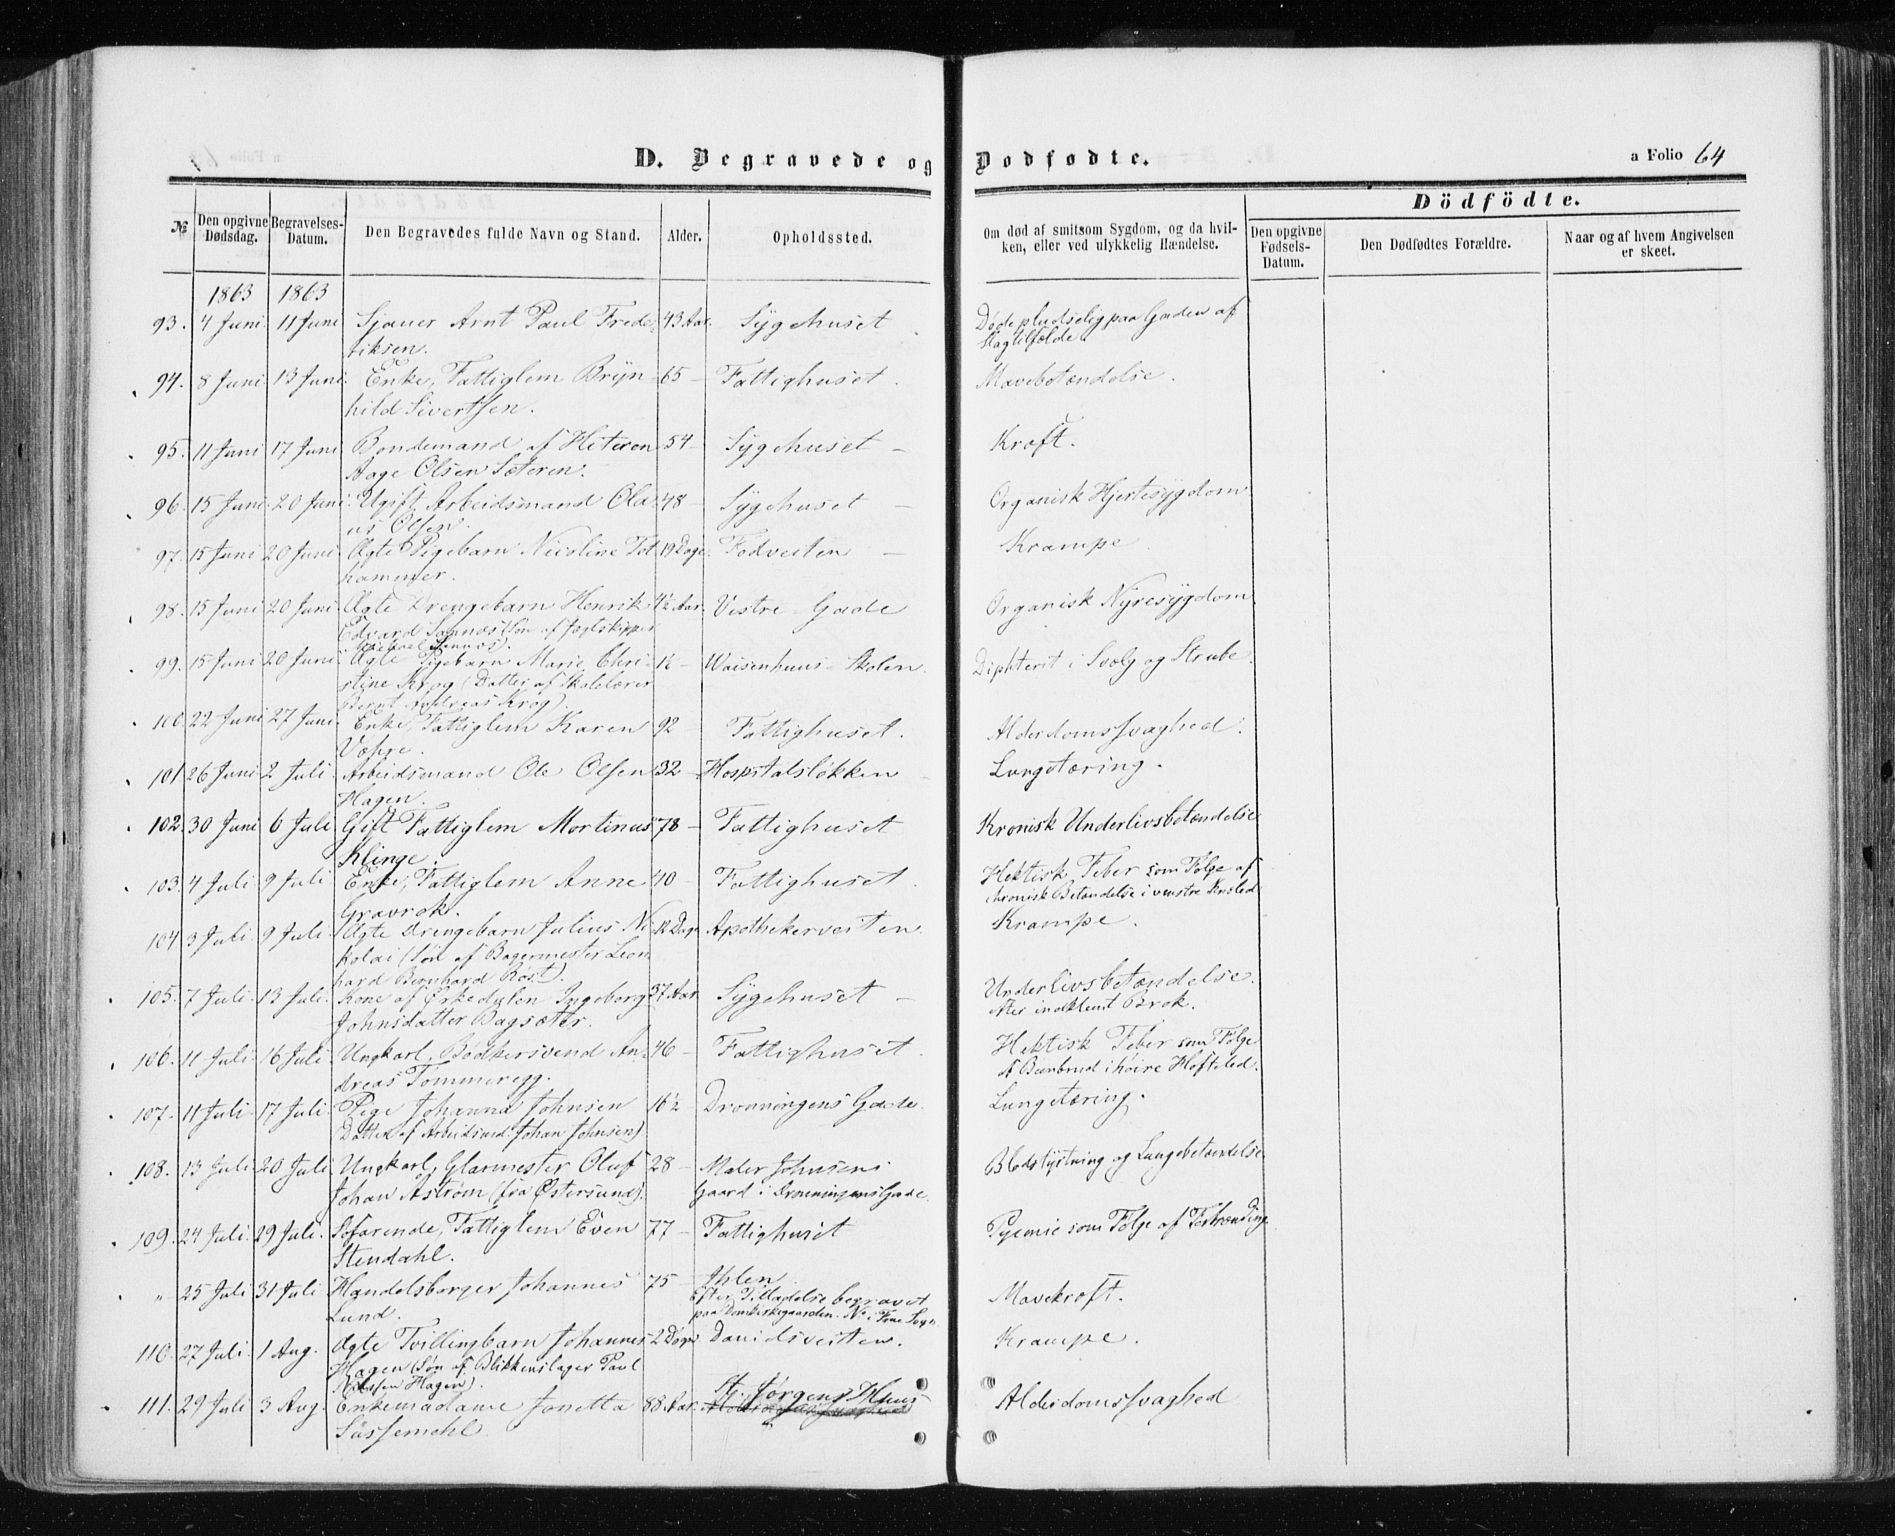 D. Begravede og Dødfødte.
a Folio 64
Dödfödte.
№
Den opgivne Dødsdag.
Begravelses-Datum.
Den Begravedes fulde Navn og Stand.
Alder.
Opholdssted.
Om død af smitsom Sygdom, og da hvilken, eller ved ulykkelig Hændelse.
Den opgivne Fødsels-Datum.
Den Dødfødtes Forældre.
Naar og af hvem Angivelsen er skeet.
1863 1863
93. 4 Juni 11 Juni Sjauer Arnt Paul Frede- 43 Aar. Sygehuset Døde pludselig paa Gaden af
riksen. Slagtilfælde
94. 8 Juni 13 Juni. Enke, Fattiglem Bryn- 65 – Fattighuset. Mavebetændelse.
hild Sivertsen.
95. 11 Juni 17 Juni Bondemand af Hiteren 54 – Sygehuset – Kræft.
Aage Olsen Sæteren.
96. 15 Juni 20 Juni. Ugift Arbeidsmand Ola- 48 – Sygehuset – Organisk Hjertesygdom
us Olsen.
97. 15 Juni 20 Juni Ægte Pigebarn Nicoline Tot- 19 Dage. Fodveiten – Krampe
hammer.
98. 15 Juni 20 Juni Ægte Drengebarn Henrik 4½ Aar. Vestre Gade Organisk Nyresygdom
Edvard Sannæs (Søn af Jægtskipper
Michael Sannæs).
99. 15 Juni 20 Juni Ægte Pigebarn Marie Chri- 1½ – Waisenhuus-Skolen. Diphterit i Svælg og Strube.
stine Krog (Datter af Skolelærer
Bernt Andreas Krog).
100. 22 Juni 27 Juni. Enke, Fattiglem Karen 92 – Fattighuset. Alderdomssvaghed.
Væhre.
101. 26 Juni 2 Juli Arbeidsmand Ole Olsen 32 – Hospitalsløkken – Lungetæring.
Hagen.
102. 30 Juni 6 Juli Gift Fattiglem Mortinus 78 – Fattighuset Kronisk Underlivsbetændelse
Klinge.
103. 4 Juli 9 Juli Enke, Fattiglem Anne 40 – Fattighuset. Hektisk Feber som Følge af
Gravrok. chronisk Betændelse i venstre Knæled
104. 3 Juli 9 Juli. Ægte Drengebarn Julius Ni- 12 Dage Apothekerveiten. Krampe.
kolai (Søn af Bagermester Leon-
hard Bernhard Rost).
105. 7 Juli 13 Juli. Kone af Ørkedalen Ingeborg 37 Aar Sygehuset – Underlivsbetændelse.
Johnsdatter Bagsæter. efter indklemt Brok.
106. 11 Juli 16 Juli. Ungkarl, Bødkersvend An- 46 – Fattighuset. Hektisk Feber som Følge
dreas Tømmeregg. af Beenbrud i høire Hofteled.
107. 11 Juli 17 Juli Pige Johanna Johnsen 16½ Dronningens Gade. Lungetæring.
Datter af Arbeidsmd. Johan Johnsen)
108. 13 Juli 20 Juli Ungkarl, Glarmester Oluf 28 – Maler Johnsens Blodstyrtning og Lungebetændelse
Johan Åstrøm (fra Østersund). Gaard i Dronningens Gade.
109. 24 Juli 29 Juli. Søfarende, Fattiglem Even 77 – Fattighuset Pyæmie som Følge af Forbrænding
Stendahl.
" 25 Juli 31 Juli Handelsborger Johannes 75 – Ihlen Mavekræft.
Lund. Efter Tilladelse begravet
paa Domkirkegaarden. No i Frue Sogn
110. 27 Juli. 1 Aug. Ægte Tvillingbarn Johannes 2 Dage Davidsveiten. Krampe.
Hagen (Søn af Blikkenslager Paul
Hagen).
111. 29 Juli 3 Aug. Enkemadame Jonetta 88 Aar. St. Jørgens Huus Alderdomssvaghed
Süssemehl.